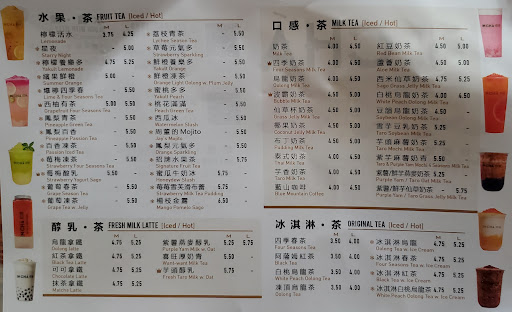 水果·茶 FRUIT TEA [Iced / Hot]
M L
檸檬活水 3.75 4.25
Lemonade
星夜 - 5.00
Starry Night
檸檬養樂多
Yakult Lemonade
Summer Orange
Lemon Four Seasons Tea
西柚有茶
Grapefruit Four Seasons Tea
鳳梨有茶
Pineapple Tea
鳳梨百香
Pineapple Passion Tea
百香凍茶
Passion Tea
莓梅凍茶
Strawberry Four Seasons Tea
莓梅酸乳 - 5.50
Strawberry Yogurt Sago
葡萄春茶 - 5.50
Grape Season Tea
葡萄凍茶 - 5.50
Grape Tea w. Jelly
荔枝青茶 - 5.50
Lychee Season Tea
草莓元氣多 - 5.50
Strawberry Sparkling
鮮橙養樂多 - 5.50
Yakult Orange
鮮橙凍茶 - 5.50
Orange Light Oolong w. Plum Jelly
蜜桃多多 - 5.50
Yakult Peach
桃花滿滿 - 5.50
Peach Green Tea
西瓜冰 - 5.50
Watermelon Slush
島薑的 Mojito - 5.50
Jay's Mojito
鳳梨元氣多 - 5.50
Pineapple Sparkling
招牌水果茶 - 5.50
Signature Fruit Tea
蜜瓜牛奶冰 - 5.75
Honeydew Slush
莓莓雪芙洛布蕾 - 5.75
Strawberry Milk Tea Pudding
楊枝金露 - 6.50
Mango Pomelo Sago
醇乳·茶 FRESH MILK LATTE [Iced / Hot]
M L
烏龍拿鐵 4.75 5.25
Oolong Latte
紅茶拿鐵 4.75 5.25
Black Tea Latte
可可拿鐵 4.75 5.25
Chocolate Latte
抹茶拿鐵 4.75 5.25
Matcha Latte
紫薯燕麥醇乳 5.25 5.75
Purple Yam Milk w. Oat
喜旺厚奶青 - 5.50
Want-want Milk Tea
芋頭醇乳 5.25 5.75
Fresh Taro Milk w. Oat
口感·茶 MILK TEA [Iced / Hot]
M L
奶茶 4.00 4.50
Milk Tea
四季奶茶 4.00 4.50
Four Seasons Milk Tea
烏龍奶茶 4.00 4.50
Oolong Milk Tea
波霸奶茶 4.00 4.50
Bubble Milk Tea
仙草杯奶茶 4.00 4.50
Grass Jelly Milk Tea
椰果奶茶 4.00 4.50
Coconut Milk Tea
布丁奶茶 4.00 4.50
Pudding Milk Tea
泰式奶茶 4.00 4.50
Thai Milk Tea
芋香奶茶 4.00 4.50
Taro Milk Tea
藍山咖啡 4.00 4.50
Blue Mountain Coffee
紅豆奶茶
Red Bean Milk Tea
薑香奶茶
Ginger Milk Tea
西米仙草奶茶
Sago Grass Jelly Milk Tea
白桃烏龍奶茶
White Peach Oolong Milk Tea
豆漿烏龍奶茶
Soybean Oolong Milk Tea
Taro Seasons Milk Tea
芋頭麻薯奶茶
Taro Mochi Milk Tea
芋薯麻薯奶青
Taro & Purple Yam Mochi x Seasons Milk Tea
紫薯/鮮芋燕麥奶茶
Purple Yam / Taro Oat Milk Tea
紫薯/鮮芋仙草奶茶 - 5.75
Purple Yam / Taro Grass Jelly Milk Tea
冰淇淋·茶 ORIGINAL TEA [Iced / Hot]
M L
四季春茶 3.50 4.00
Four Seasons Tea
阿薩姆紅茶 3.50 4.00
Black Tea
白桃烏龍茶 3.50 4.00
White Peach Oolong Tea
凍頂烏龍茶 3.50 4.00
Oolong Tea
冰淇淋烏龍 4.75 5.25
Oolong Tea w. Ice Cream
冰淇淋春茶 4.75 5.25
Four Seasons Tea w. Ice Cream
冰淇淋紅茶 4.75 5.25
Black Tea w. Ice Cream
冰淇淋白桃烏龍茶 4.75 5.25
White Peach Oolong Tea w. Ice Cream